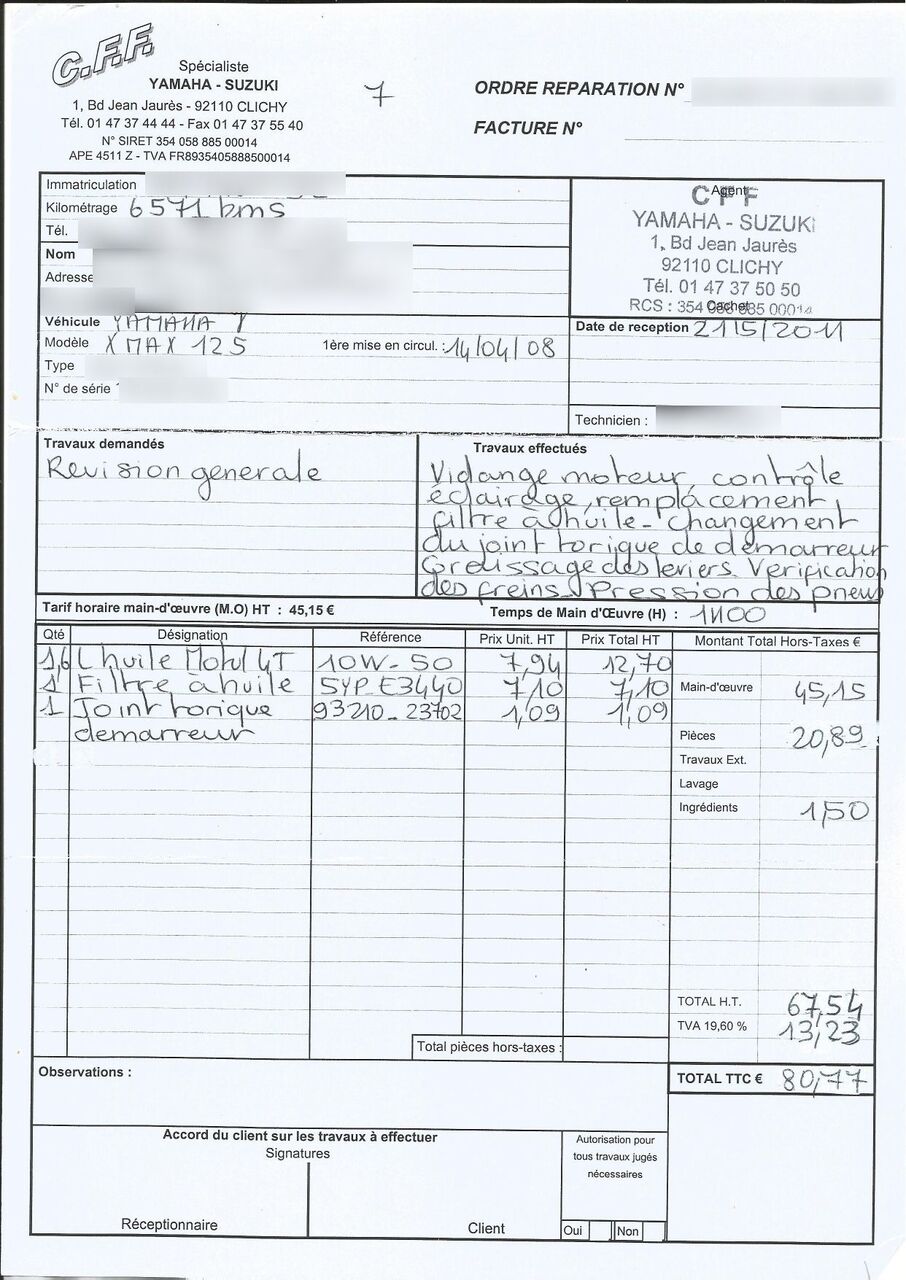 C.F.F.
Spécialiste
YAMAHA - SUZUKI
1, Bd Jean Jaurès - 92110 CLICHY
Tél. 01 47 37 44 44 - Fax 01 47 37 55 40
N° SIRET 354 058 885 00014
APE 4511 Z - TVA FR8935405888500014
7
ORDRE REPARATION N°
FACTURE N°
Immatriculation
Kilométrage 6571 kms
Tél.
Nom
Adresse
Agent
CFF
YAMAHA - SUZUKI
1, Bd Jean Jaurès
92110 CLICHY
Tél. 01 47 37 50 50
RCS : 354 885 00014
Cachet
Véhicule YAMAHA
Modèle X MAX 125 1ère mise en circul. : 14/04/08
Type
N° de série
Date de reception 21/5/2011
Technicien :
Travaux demandés
Revision generale
Travaux effectués
Vidange moteur, contrôle
éclairage, remplacement
filtre à huile - changement
du joint torique de demarreur
Graissage des leviers. Verification
des freins. Pression des pneus
Tarif horaire main-d'œuvre (M.O) HT : 45,15 € Temps de Main d'Œuvre (H) : 1H00
Qté Désignation Référence Prix Unit. HT Prix Total HT Montant Total Hors-Taxes €
1,6 L huile Motul 4T 10W-50 7,94 12,70
1 Filtre à huile 5YP-E3440 7,10 7,10
1 Joint torique 93210-23702 1,09 1,09
demarreur
Main-d'œuvre 45,15
Pièces 20,89
Travaux Ext.
Lavage
Ingrédients 1,50
TOTAL H.T. 67,54
TVA 19,60 % 13,23
Total pièces hors-taxes :
TOTAL TTC € 80,77
Observations :
Accord du client sur les travaux à effectuer
Signatures
Réceptionnaire
Client
Autorisation pour
tous travaux jugés
nécessaires
Oui Non